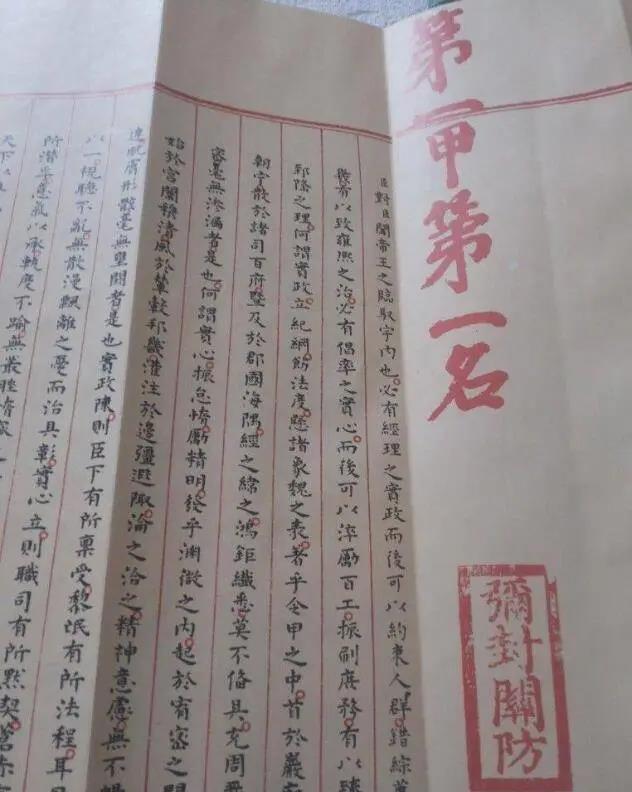 第一甲第一名
彌封關防
臣對臣聞帝王之臨馭宇內也必有經理之實政而後可以約束人群錯綜萬
幾有以致雍熙之治必有倡率之實心而後可以淬勵百工振刷庶務有以臻
郅隆之理何謂實政立紀綱飭法度懸諸象魏之表著乎令甲之中首於巖
朝宁散於諸司百府暨及於郡國海隅經之緯之鴻鉅纖悉莫不備具充周
密毫無滲漏者是也何謂實心振怠惰勵精明發乎淵微之內起於宥密之間
始於宮闈穆清風於輦轂邦畿灌注於邊疆遐陬淪之洽之精神意慮無不暢
達肌膚形骸毫無壅閼者是也實政陳則臣下有所稟受黎氓有所法程耳目
以一視聽不亂無散漫飄離之憂而治具彰實心立則職司有所默契蒼赤
所潛孚意氣以承軌度不踰無叢脞惰窳之
天下以